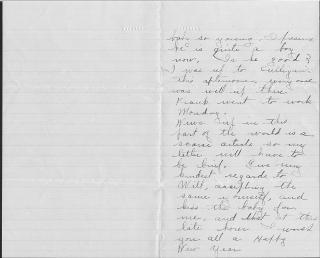 baby so young. I presume
he is quite a boy
now. Is he good?
I was up to
this afternoon, every one
was well up there
Frank went to work
Monday.
News up in this
part of the world is a
scarce article so my
letter will have to
be brief. Give my
kindest regards to
Will, accepting the
same yourself, and
kiss the baby for
me, and but at this
late hour I wish
you all a Happy
New Year